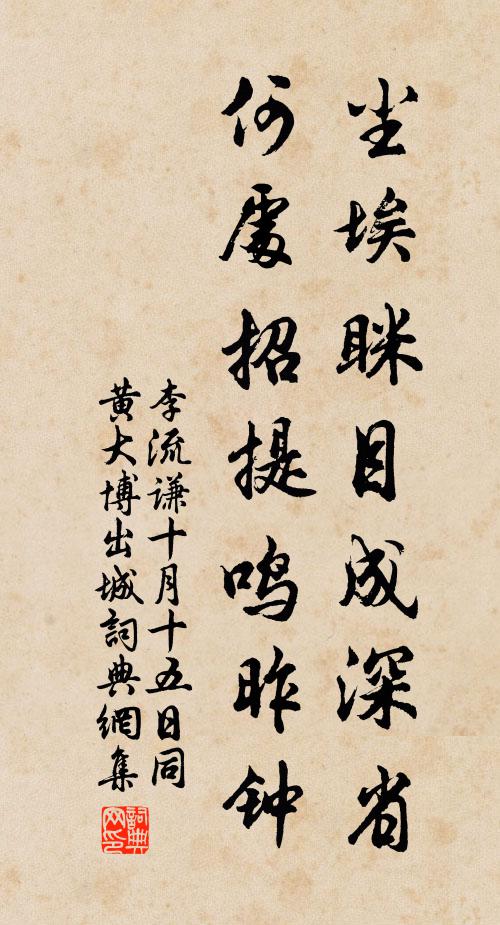 尘埃眯目成深省
何處招提鳴昨钟
李流谦十月十五日同
黄大博出城詞典網集
詞典
网印